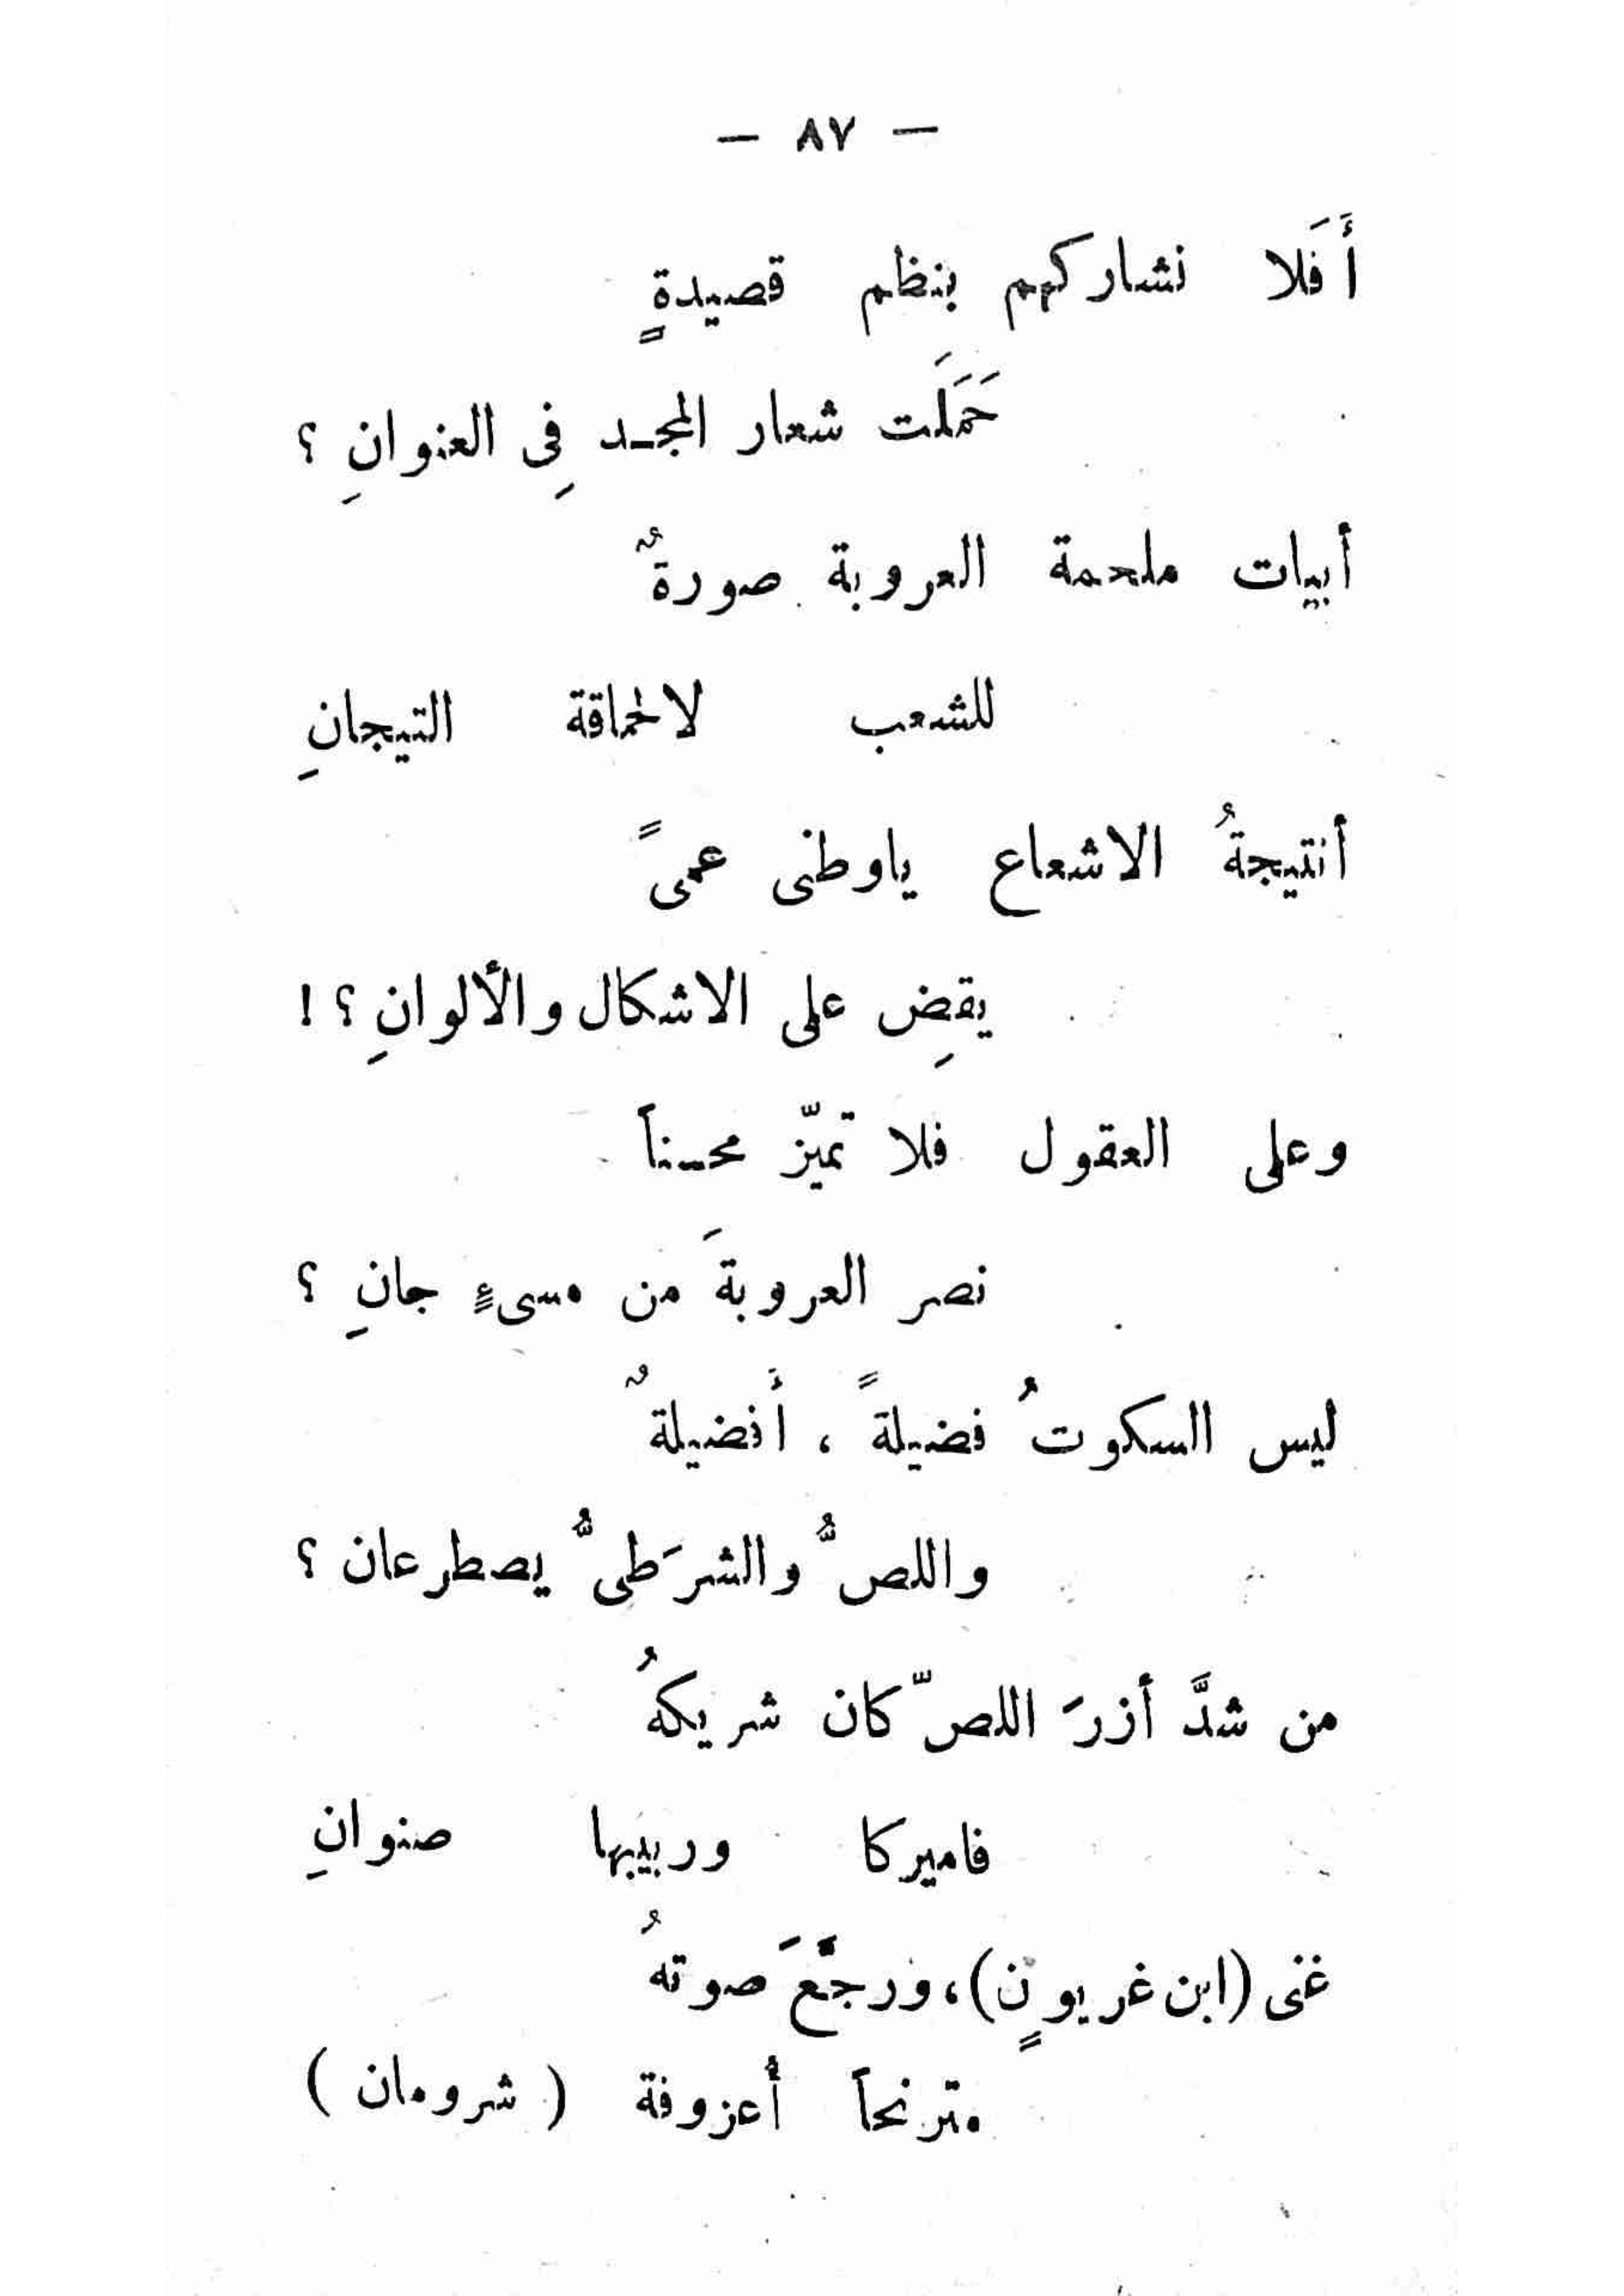 — ٨٧ —
أَفَلا نشاركهم بنظم قصيدةٍ
حَمَلَت شعار المجد فِى العنوانِ ؟
أبيات ملحمة العروبة صورةٌ
للشعب لالحماقة التيجانِ
أنتيجةُ الاشعاع ياوطنى عمىً
يقضِ على الاشكال والألوانِ ؟ !
وعلى العقول فلا تميّز محسناً
نصر العروبةَ من مسىءٍ جانِ ؟
ليس السكوتُ فضيلةً ، أَفضيلةٌ
واللصُّ والشرَطىُّ يصطرعان ؟
من شدَّ أزرَ اللصّ كان شريكهُ
فاميركا وربيبها صنوانِ
غنى (ابن غريونٍ)، ورجَّعَ صوتهُ
مترنحاً أعزوفة ( شرومان )